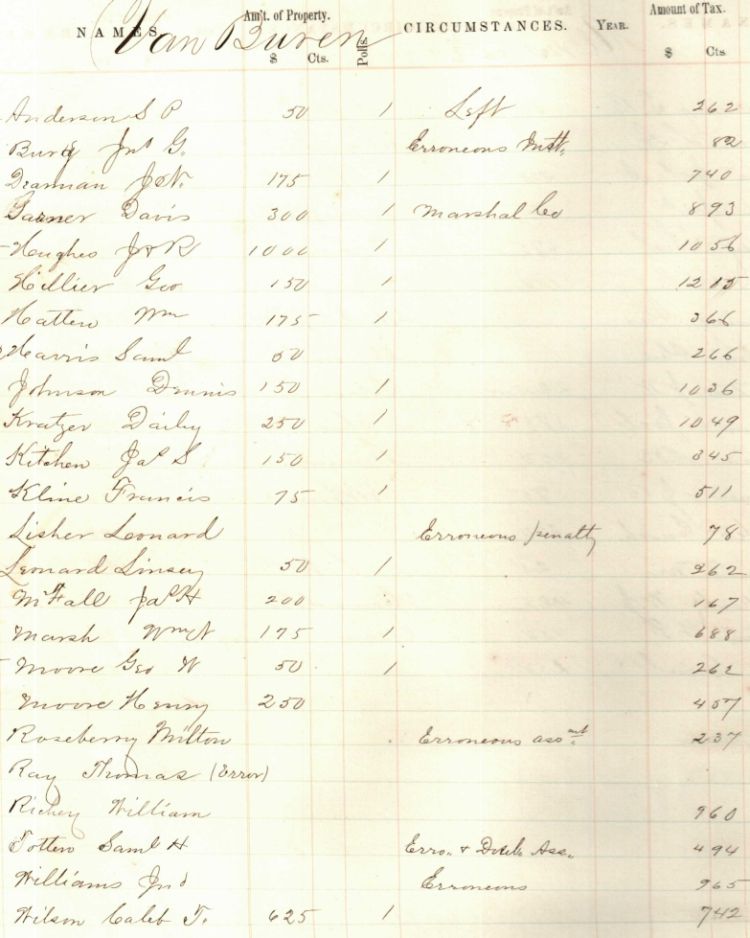 Van Buren
NAMES. Am't. of Property. $ Cts. Polls. CIRCUMSTANCES. YEAR. Amount of Tax. $ Cts
Anderson S P 50 1 Left 262
Jno G. Erroneous 82
J. N. 175 1 740
Garner Davis 300 1 Marshal Co 893
Hughes J & R 1000 1 1056
Hillier Geo 150 1 1215
Hatten Wm 175 1 366
Harris Saml 50 266
Johnson Dennis 150 1 1036
Kratzer Daily 250 1 1049
Kitchen Jas S 150 1 345
Kline Francis 75 1 511
Lisher Leonard Erroneous penalty 78
Leonard Linsey 50 1 262
McFall Jas H 200 167
Marsh 175 1 688
Moore Geo W 50 1 262
Moore Henry 250 457
Roseberry Milton Erroneous assmt. 237
Ray Thomas (Error)
Richey William 960
Totten Saml H Erro. & Doub Ass. 494
Williams Jno Erroneous 965
Wilson Caleb T. 625 1 742